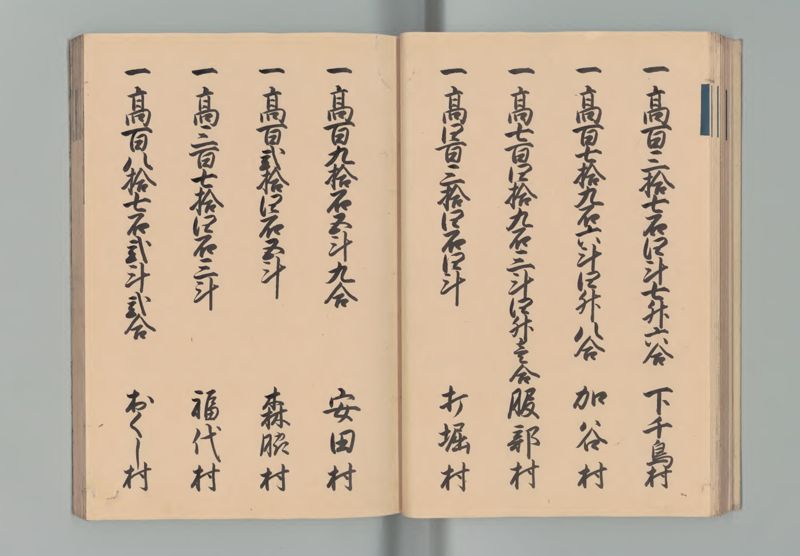 一高百三拾七石四斗七升六合 下千鳥村
一高百七拾九石六斗四升八合 加谷村
一高七百四拾九石三斗四升壱合 服部村
一高四百三拾四石四斗 打堀村
一高百九拾石五斗九合 安田村
一高百弐拾四石五斗 森脇村
一高三百七拾四石三斗 福代村
一高百八拾七石弐斗弐合 おくし村